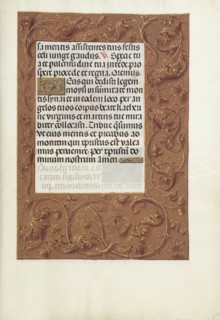 sa mentis assistentes tuis festis
celi iungit gaudijs. V. Specie tu
a et pulcritudine tua intende pro
spere procede et regna. Oremus.
Deus qui dedisti legem
moysi in summitate mon
tis synai et in eodem loco per an
gelos tuos corpus beate katheri
ne virginis et martiris tue mira
biliter collocasti. Tribue quesumus
ut eius meritis et precibus ad
montem qui xpristus est valea
mus peruenire. per xpristum do
minum nostrum Amen